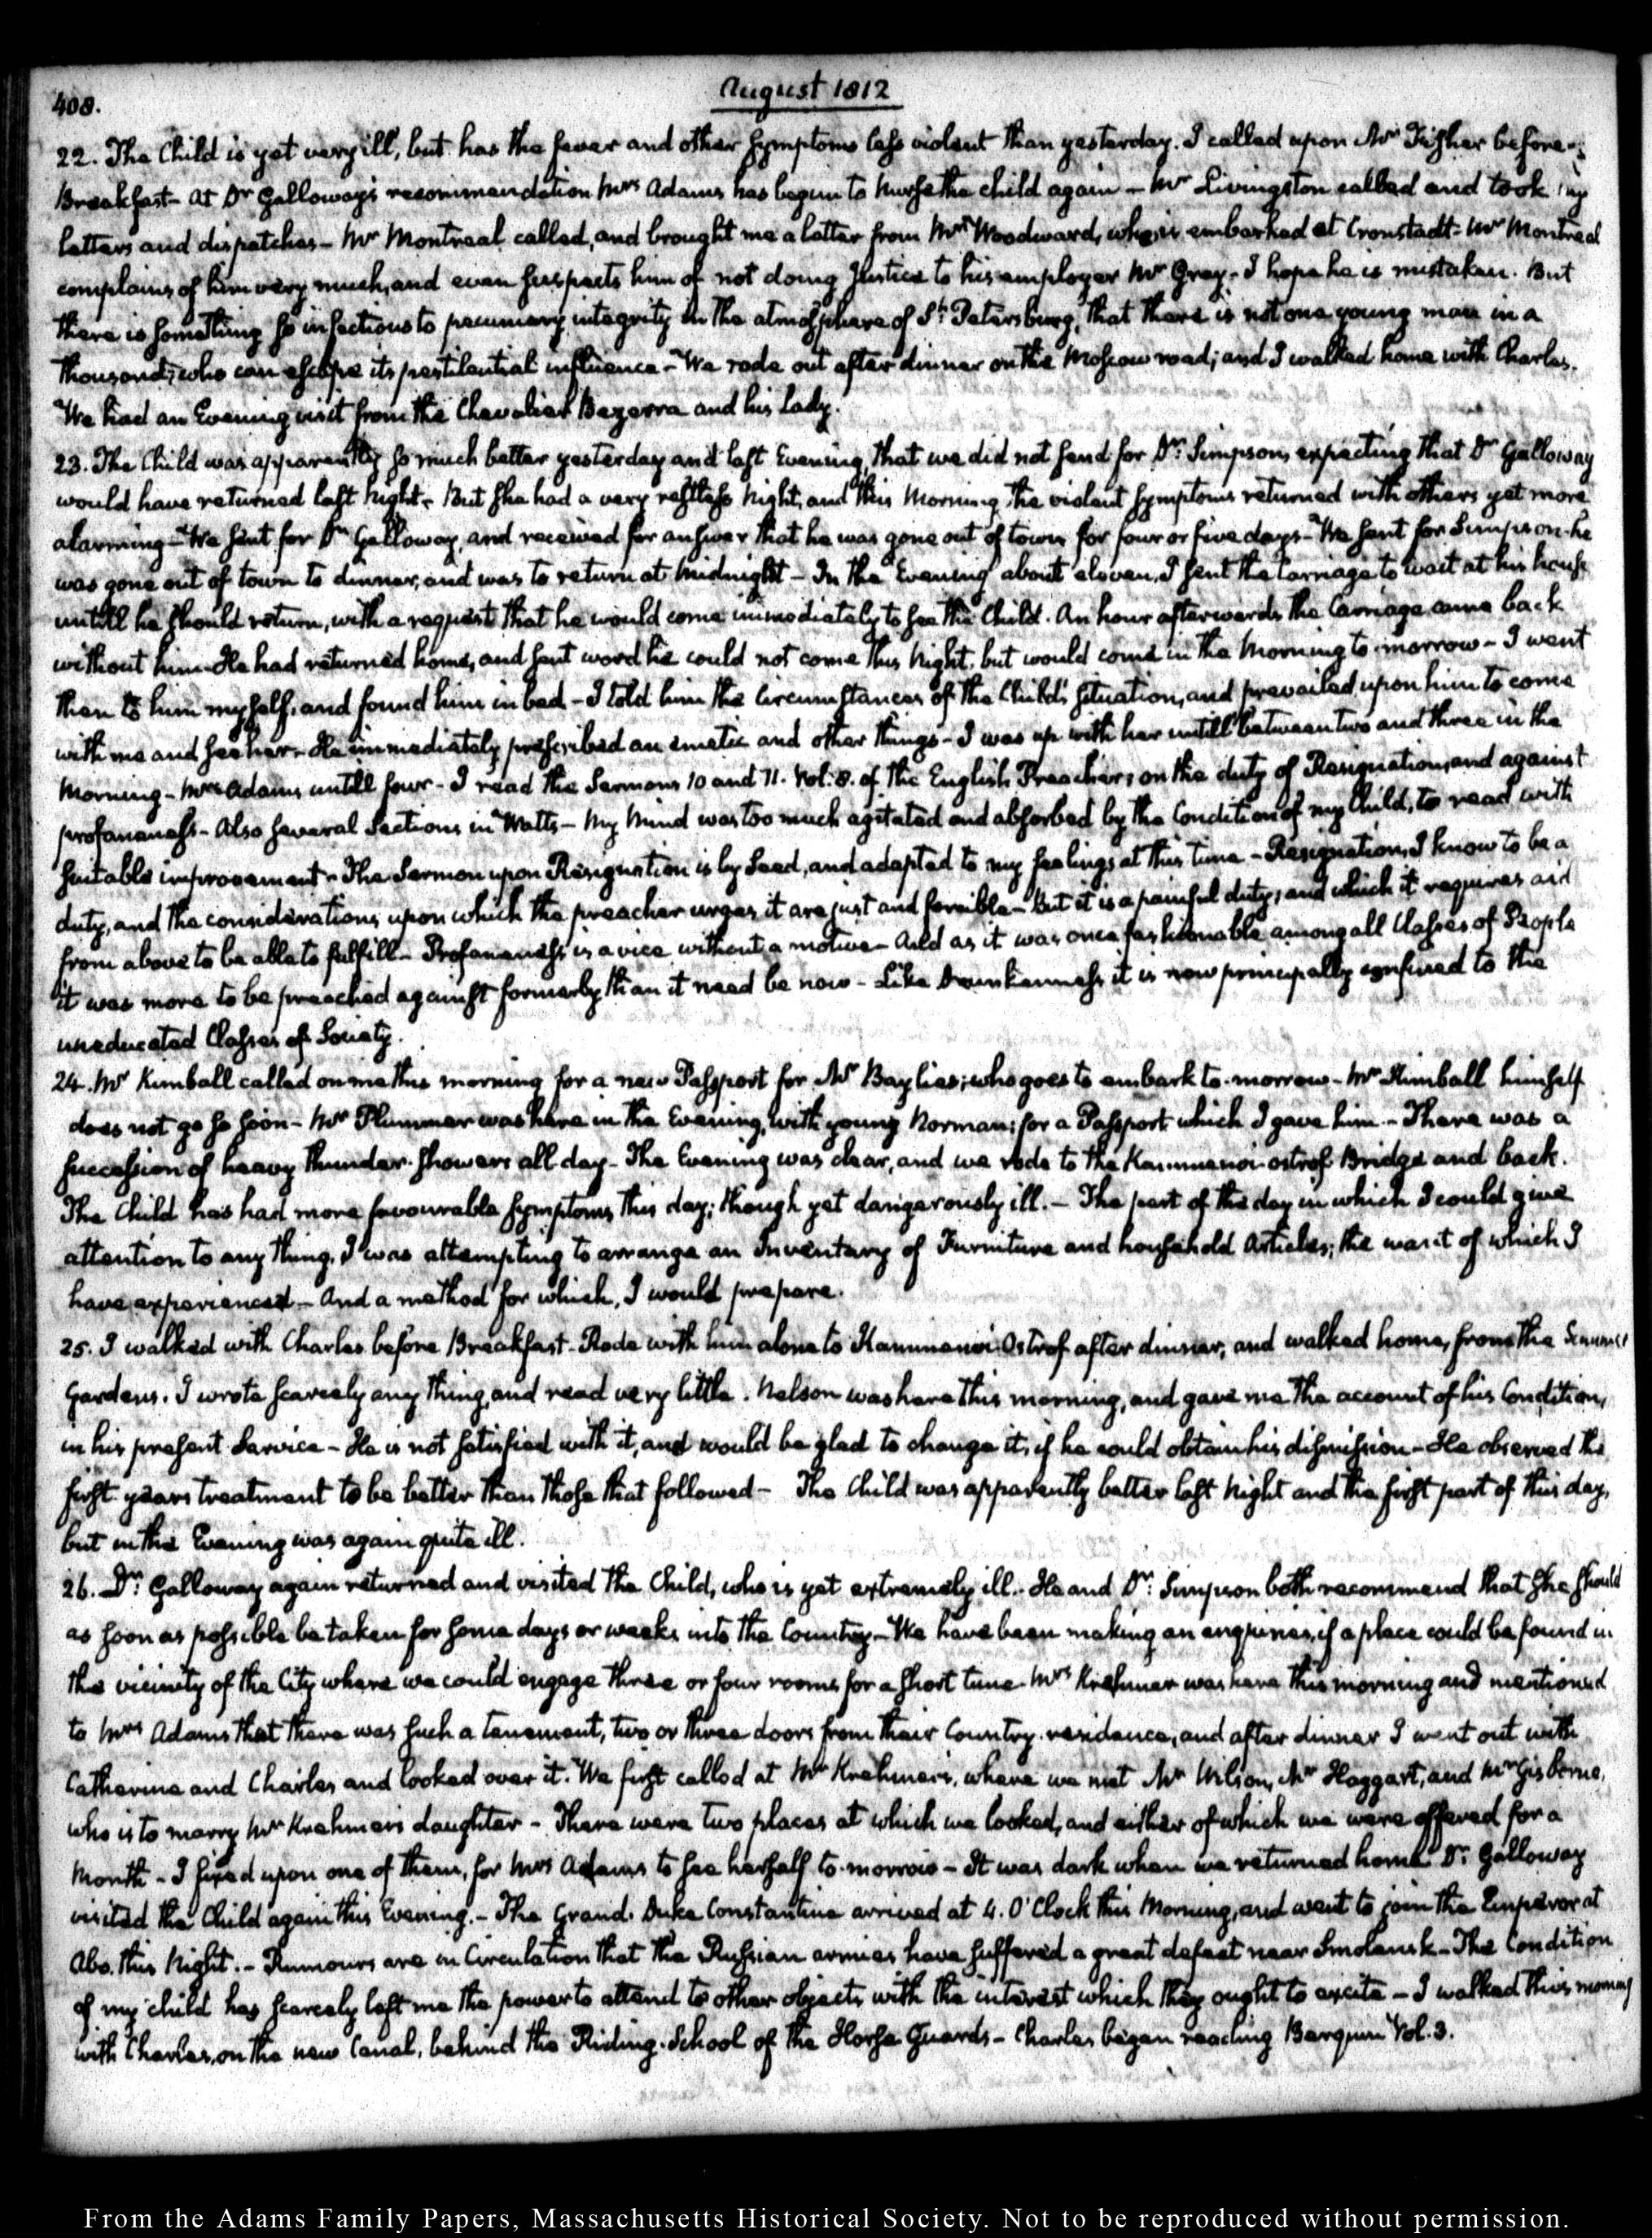 408.
August 1812
22. The Child is yet very ill, but has the fever and other symptoms less violent than yesterday. I called upon Mr Fisher before
Breakfast- At Dr Galloway's recommendation Mrs Adams has begun to nurse the child again - Mr Livingston called and took my
letters and dispatches- Mr Montreal called, and brought me a letter from Mr Woodward, who is embarked at Cronstadt- Mr Montreal
complains of him very much, and even suspects him of not doing Justice to his employer Mr Gray- I hope he is mistaken. But
there is something so infectious to pecuniary integrity in the atmosphere of St. Petersburg, that there is not one young man in a
thousand, who can escape its pestilential influence - We rode out after dinner on the Moscow road; and I walked home with Charles.
We had an Evening visit from the Chevalier Bezerra and his Lady.
23. The Child was apparently so much better yesterday and last Evening, that we did not send for Dr. Simpson, expecting that Dr Galloway
would have returned last Night- But she had a very restless Night, and this Morning the violent symptoms returned with others yet more
alarming - We sent for Dr Galloway, and received for answer that he was gone out of town for four or five days- We sent for Simpson- he
was gone out of town to dinner, and was to return at Midnight - In the Evening about eleven, I sent the Carriage to wait at his house
untill he should return, with a request that he would come immediately to see the Child. An hour afterwards the Carriage came back
without him. He had returned home, and sent word he could not come this Night, but would come in the Morning to-morrow - I went
then to him myself, and found him in bed - I told him the Circumstances of the Child's situation, and prevailed upon him to come
with me and see her- He immediately prescribed an emetic and other things - I was up with her untill between two and three in the
Morning - Mrs Adams untill four - I read the Sermons 10 and 11. Vol: 8. of the English Preacher; on the duty of Resignation, and against
profaneness- Also several Sections in Watts - My Mind was too much agitated and absorbed by the Condition of my Child, to read with
suitable improvement- The Sermon upon Resignation is by Seed, and adapted to my feelings at this time - Resignation, I know to be a
duty, and the considerations upon which the preacher urges it are just and forcible- But it is a painful duty; and which it requires aid
from above to be able to fulfill- Profaneness is a vice without a motive- And as it was once fashionable among all Classes of People
it was more to be preached against formerly than it need be now - Like Drunkenness it is now principally confined to the
uneducated Classes of Society.
24. Mr Kimball called on me this morning for a new Passport for Mr Baylies; who goes to embark to-morrow - Mr Kimball himself
does not go so soon- Mr Plummer was here in the Evening, with young Norman; for a Passport which I gave him.- There was a
succession of heavy thunder-showers all day- The Evening was clear, and we rode to the Kammenoi-ostrof Bridge and back.
The Child has had more favourable symptoms this day; though yet dangerously ill. - The part of the day in which I could give
attention to any thing, I was attempting to arrange an Inventary of Furniture and household Articles; the want of which I
have experienced - And a method for which, I would prepare.
25. I walked with Charles before Breakfast- Rode with him alone to Kammenoi Ostrof after dinner, and walked home, from the Summer
Gardens. I wrote scarcely any thing, and read very little. Nelson was here this morning, and gave me the account of his Condition,
in his present Service - He is not satisfied with it, and would be glad to change it, if he could obtain his dismission - He observed the
first years treatment to be better than those that followed - The Child was apparently better last Night and the first part of this day,
but in the Evening was again quite ill.
26. Dr. Galloway again returned and visited the Child, who is yet extremely ill.- He and Dr. Simpson both recommend that she should
as soon as possible be taken for some days or weeks into the Country- We have been making an enquiries, if a place could be found in
the vicinity of the City where we could engage three or four rooms for a short time. Mrs Krehmer was here this morning and mentioned
to Mrs Adams that there was such a tenement, two or three doors from their Country-residence, and after dinner I went out with
Catherine and Charles and looked over it. We first called at Mr Krehmer's, where we met Mr Wilson, Mr Haggart, and Mr Gisborne,
who is to marry Mr Krehmer's daughter - There were two places at which we looked, and either of which we were offered for a
Month - I fixed upon one of them, for Mrs Adams to see herself to-morrow - It was dark when we returned home Dr. Galloway
visited the Child again this Evening.- The Grand-Duke Constantine arrived at 4. O'Clock this Morning, and went to join the Emperor at
Abo. this Night.- Rumours are in Circulation that the Russian armies have suffered a great defeat near Smolensk- The Condition
of my child has scarcely left me the power to attend to other objects with the interest which they ought to excite - I walked this morning
with Charles, on the new Canal, behind the Riding-School of the Horse Guards - Charles began reading Berquin Vol. 3.
From the Adams Family Papers, Massachusetts Historical Society. Not to be reproduced without permission.